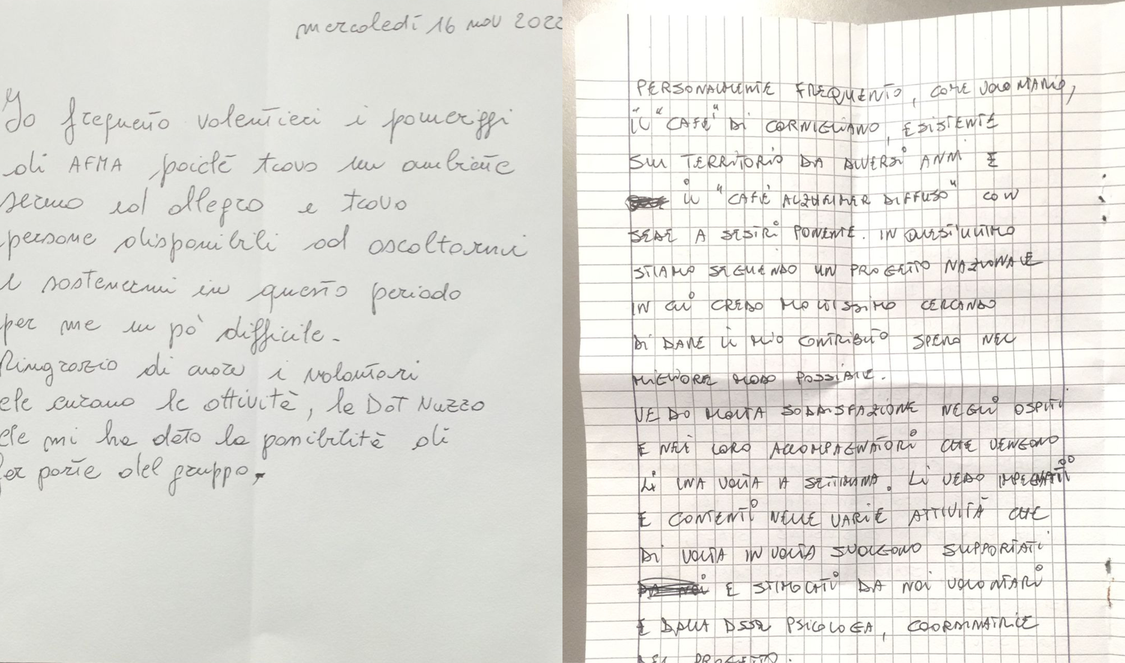 mercoledì 16 nov 2022
Io frequento volentieri i pomeriggi
di AFMA poiché trovo un ambiente
sereno ed allegro e trovo
persone disponibili ad ascoltarmi
e sostenermi in questo periodo
per me un pò difficile.
Ringrazio di cuore i volontari
che curano le attività, la DOT NUZZO
che mi ha dato la possibilità di
far parte del gruppo.
PERSONALMENTE FREQUENTO, COME VOLONTARIO,
IL "CAFÈ" DI CORNIGLIANO, ESISTENTE
SUL TERRITORIO DA DIVERSI ANNI E
IL "CAFÈ ALZHEIMER DIFFUSO" CON
SEDE A SESTRI PONENTE. IN QUEST'ULTIMO
STIAMO SEGUENDO UN PROGETTO NAZIONALE
IN CUI CREDO MOLTISSIMO CERCANDO
DI DARE IL MIO CONTRIBUTO SPERO NEL
MIGLIORE MODO POSSIBILE.
VEDO MOLTA SODDISFAZIONE NEGLI OSPITI
E NEI LORO ACCOMPAGNATORI CHE VENGONO
LÌ UNA VOLTA A SETTIMANA. LI VEDO IMPEGNATI
E CONTENTI NELLE VARIE ATTIVITÀ CHE
DI VOLTA IN VOLTA SVOLGONO SUPPORTATI
E STIMOLATI DA NOI VOLONTARI
E DALLA DSSA PSICOLOGA, COORDINATRICE
DEL PROGETTO.